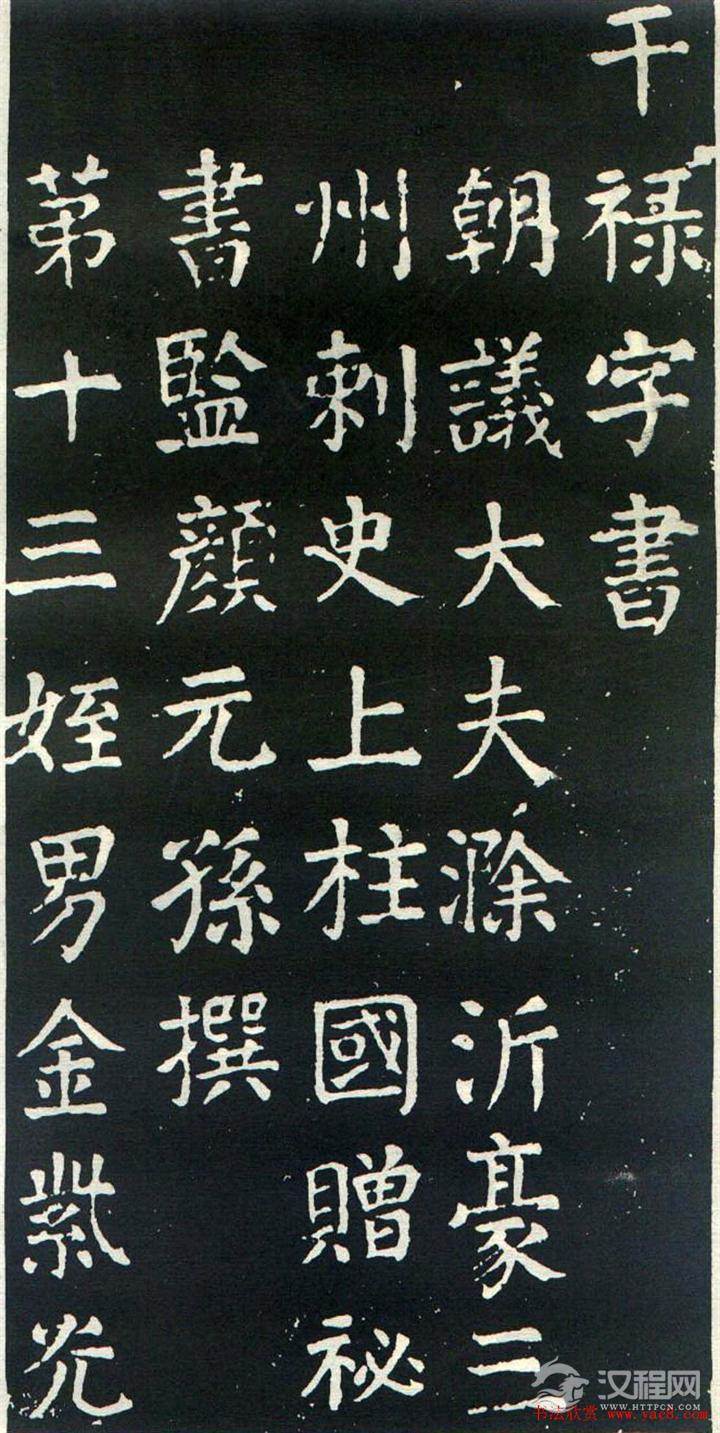 干禄字書
朝議大夫滁沂豪三
州刺史上柱國贈祕
書監顏元孫撰
第十三姪男金紫光
汉程网
WWW.HTTPCN.COM
书法欣赏 www.yac8.com